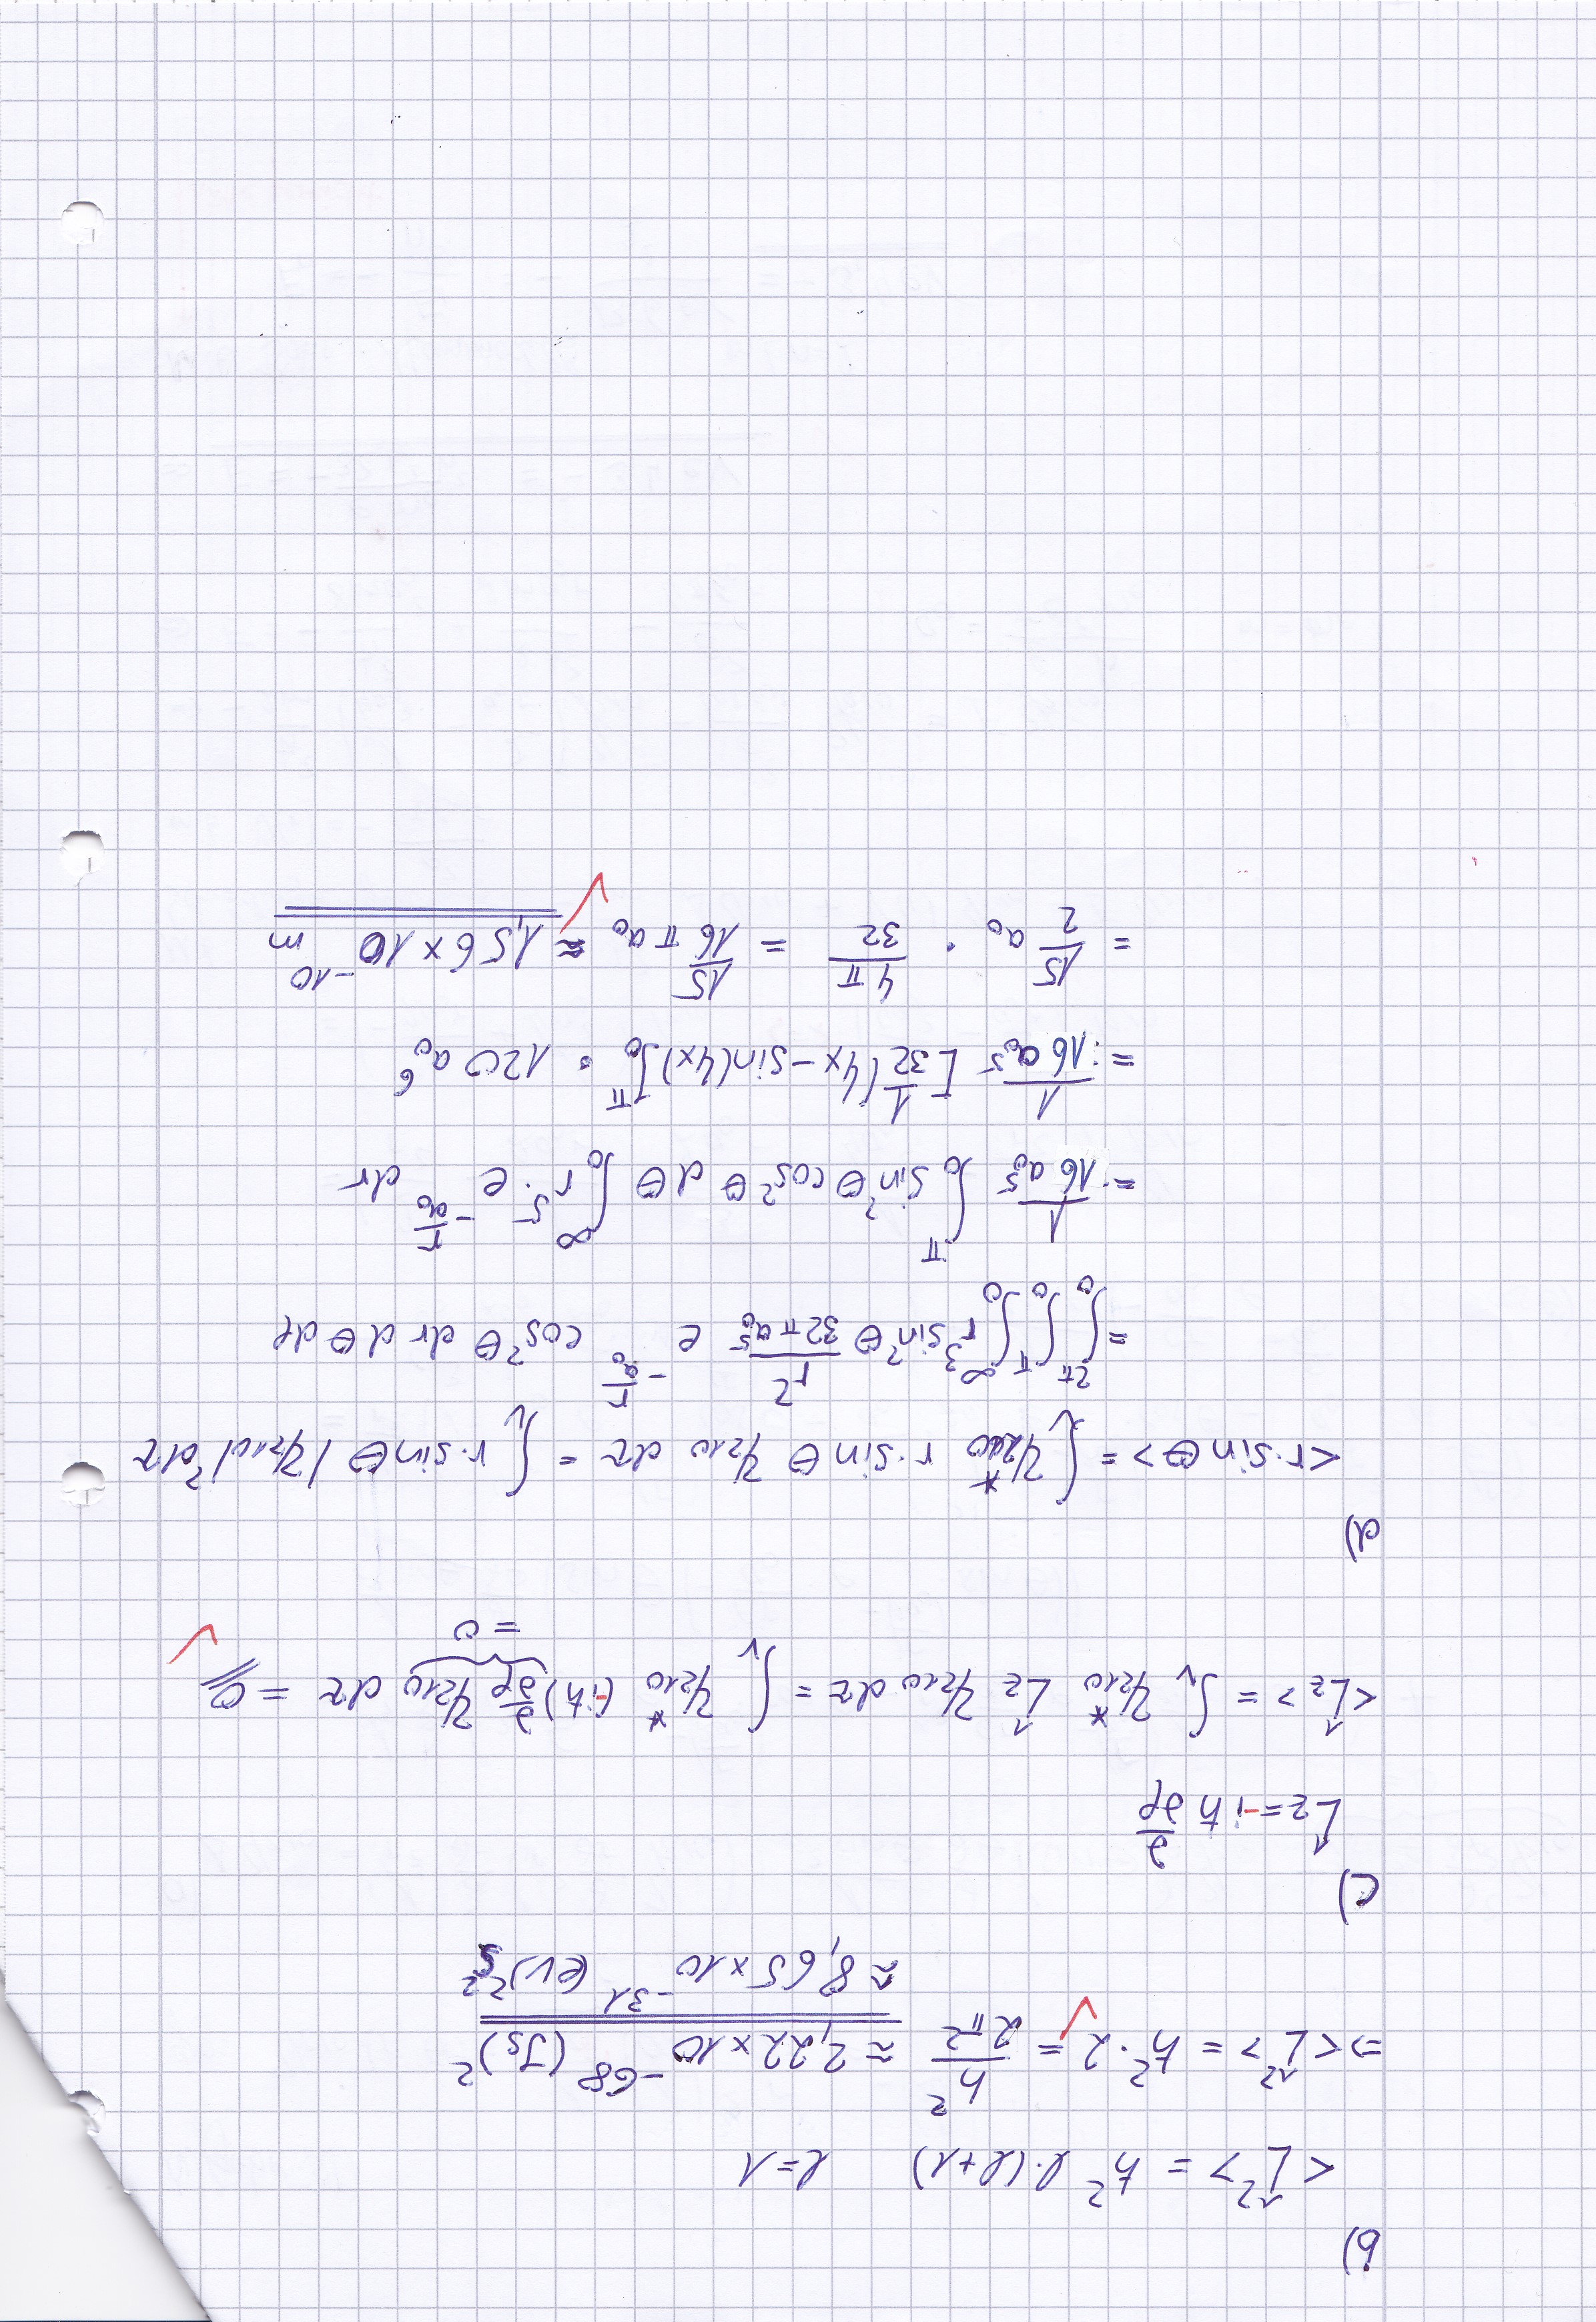 b)
<L̂²> = ħ² l·(l+1)    l=1
⇒<L̂²> = ħ²·2 = h²/(2π²) ≈ 2,22×10⁻⁶⁸ (Js)²
≈ 8,65×10⁻³¹ (eV)²s²
c)
L̂z = -iħ ∂/∂φ
<L̂z> = ∫_V ψ₂₁₀* L̂z ψ₂₁₀ dτ = ∫_V ψ₂₁₀* (-iħ) ∂/∂φ ψ₂₁₀ dτ = 0
= 0
d)
<r·sin θ> = ∫_V ψ₂₁₀* r·sin θ ψ₂₁₀ dτ = ∫_V r·sin θ |ψ₂₁₀|² dτ
= ∫₀^2π ∫₀^π ∫₀^∞ r³ sin²θ r²/(32πa₀⁵) e^(-r/a₀) cos²θ dr dθ dφ
= 1/(16 a₀⁵) ∫₀^π sin²θ cos²θ dθ ∫₀^∞ r⁵· e^(-r/a₀) dr
= 1/(16 a₀⁵) [1/32 (4x-sin(4x)]₀^π · 120 a₀⁶
= 15/2 a₀ · 4π/32 = 15/16 π a₀ ≈ 1,56×10⁻¹⁰ m